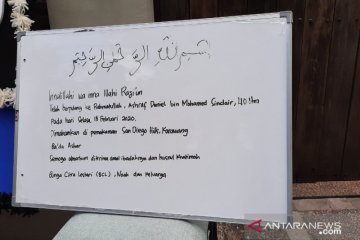 بسم الله الرحمن الرحيم
Innalillahi wa inna Illahi Rogi'un
Telah berpulang ke Rahmatullah, Ashraf Daniel bin Mohamed Sinclair, 40 thn
Pada hari Selasa, 18 Februari 2020.
Dimakamkan di pemakaman San Diego Hills, Karawang
Ba'da Ashar
Semoga almarhum diterima amal ibadahnya dan husnul khatimah
Bunga Citra Lestari (BCL), Noah dan keluarga
ANTARANEWS
.com